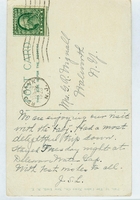 POST CARD
Mr G. R. Mignall
Walworth
N.Y.
We are enjoying our visit
with the boy. Had a most
delightful trip down.
Stayed Tuesday night at
Delaware Water Gap.
With best wishes to all.
J.S.L.